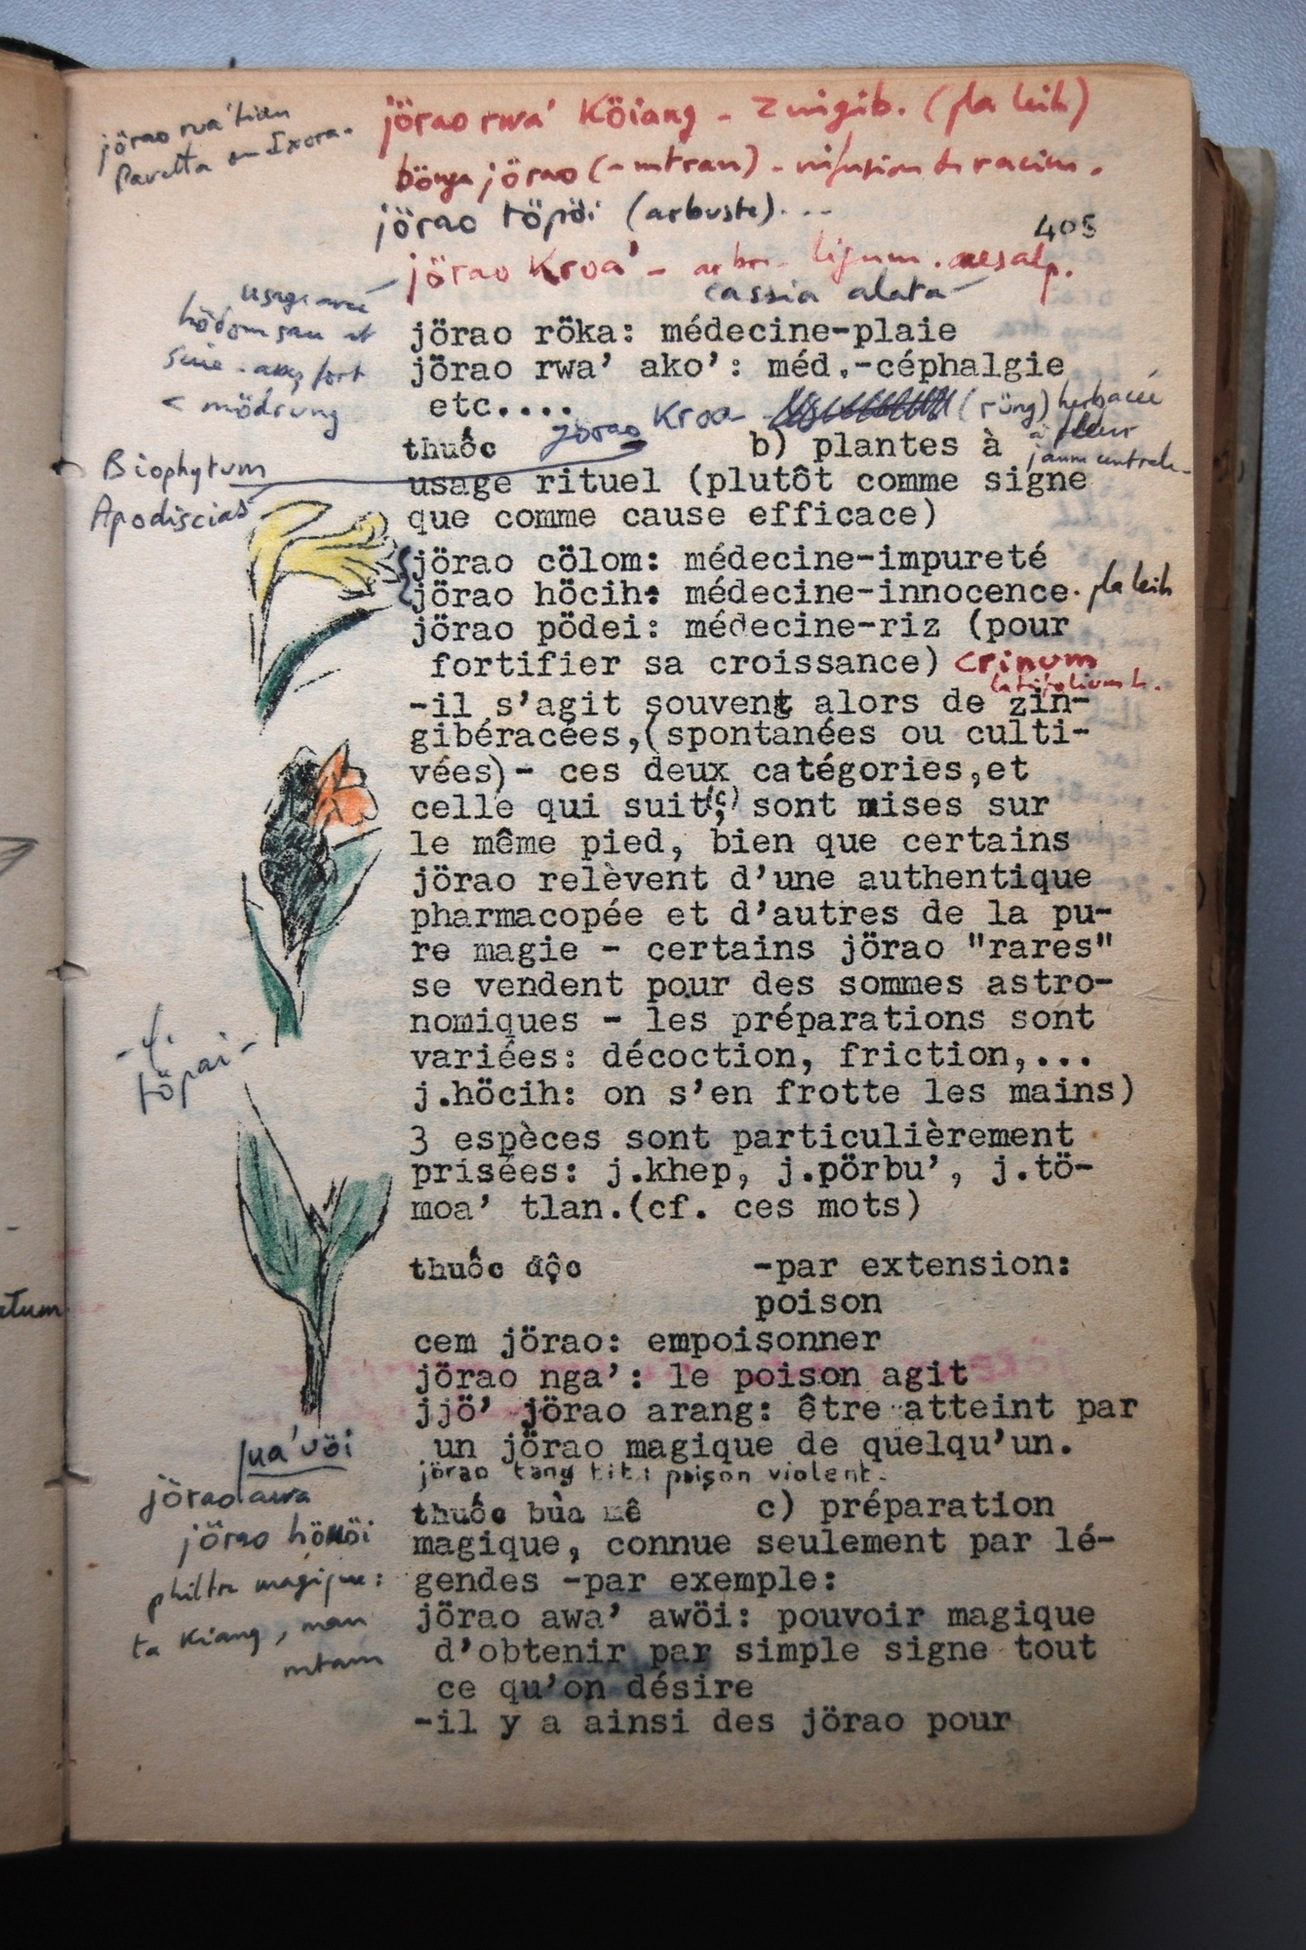 jörao rwa' tian
Pavetta ou Ixora.
jörao rwa' Köiang - Zingib. (pla leih)
bönga jörao (- mtran) - infusion de racines.
jörao töpöi (arbuste)...
405
jörao Kroa' - arbre - lignum. Cesalp.
cassia alata
usage avec
hödom san et
suie - assez fort
< mödrung
jörao röka: médecine-plaie
jörao rwa' ako': méd.-céphalgie
etc....
jörao Kroa (rüng) herbacée
à fleur
jaune centrale
thuốc b) plantes à
usage rituel (plutôt comme signe
que comme cause efficace)
Biophytum
Apodiscias
jörao cölom: médecine-impureté
jörao höcih: médecine-innocence. pla leih
jörao pödei: médecine-riz (pour
fortifier sa croissance) Crinum
latifolium L.
-il s'agit souvent alors de zin-
gibéracées,(spontanées ou culti-
vées)- ces deux catégories,et
celle qui suit(c), sont mises sur
le même pied, bien que certains
jörao relèvent d'une authentique
pharmacopée et d'autres de la pu-
re magie - certains jörao "rares"
se vendent pour des sommes astro-
nomiques - les préparations sont
variées: décoction, friction,...
j.höcih: on s'en frotte les mains)
töpai
3 espèces sont particulièrement
prisées: j.khep, j.pörbu', j.tö-
moa' tlan.(cf. ces mots)
atum
thuốc độc -par extension:
poison
cem jörao: empoisonner
jörao nga': le poison agit
jjö' jörao arang: être atteint par
un jörao magique de quelqu'un.
jörao tang tit: poison violent.
thuốc bùa mê c) préparation
magique, connue seulement par lé-
gendes -par exemple:
jörao awa' awöi: pouvoir magique
d'obtenir par simple signe tout
ce qu'on désire
-il y a ainsi des jörao pour
jua'vöi
jörao awa
jörao hököi
philtre magique:
ta Kiang, man
mtam